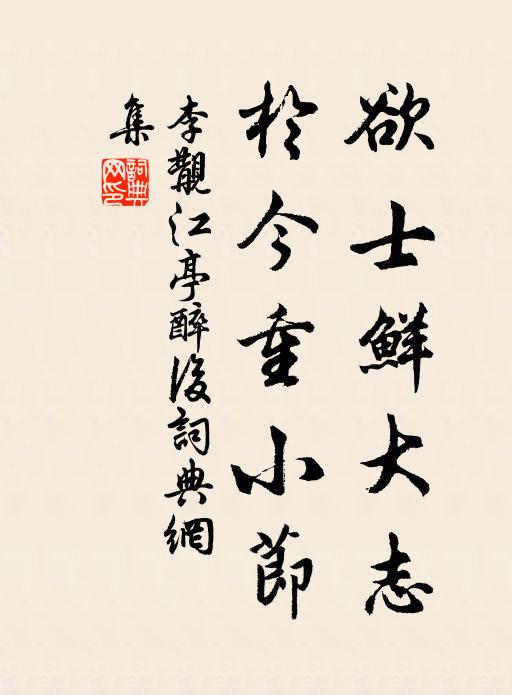 欲士鮮大志
於今重小節
李觀江亭醉後詞典網
集
詞典網印